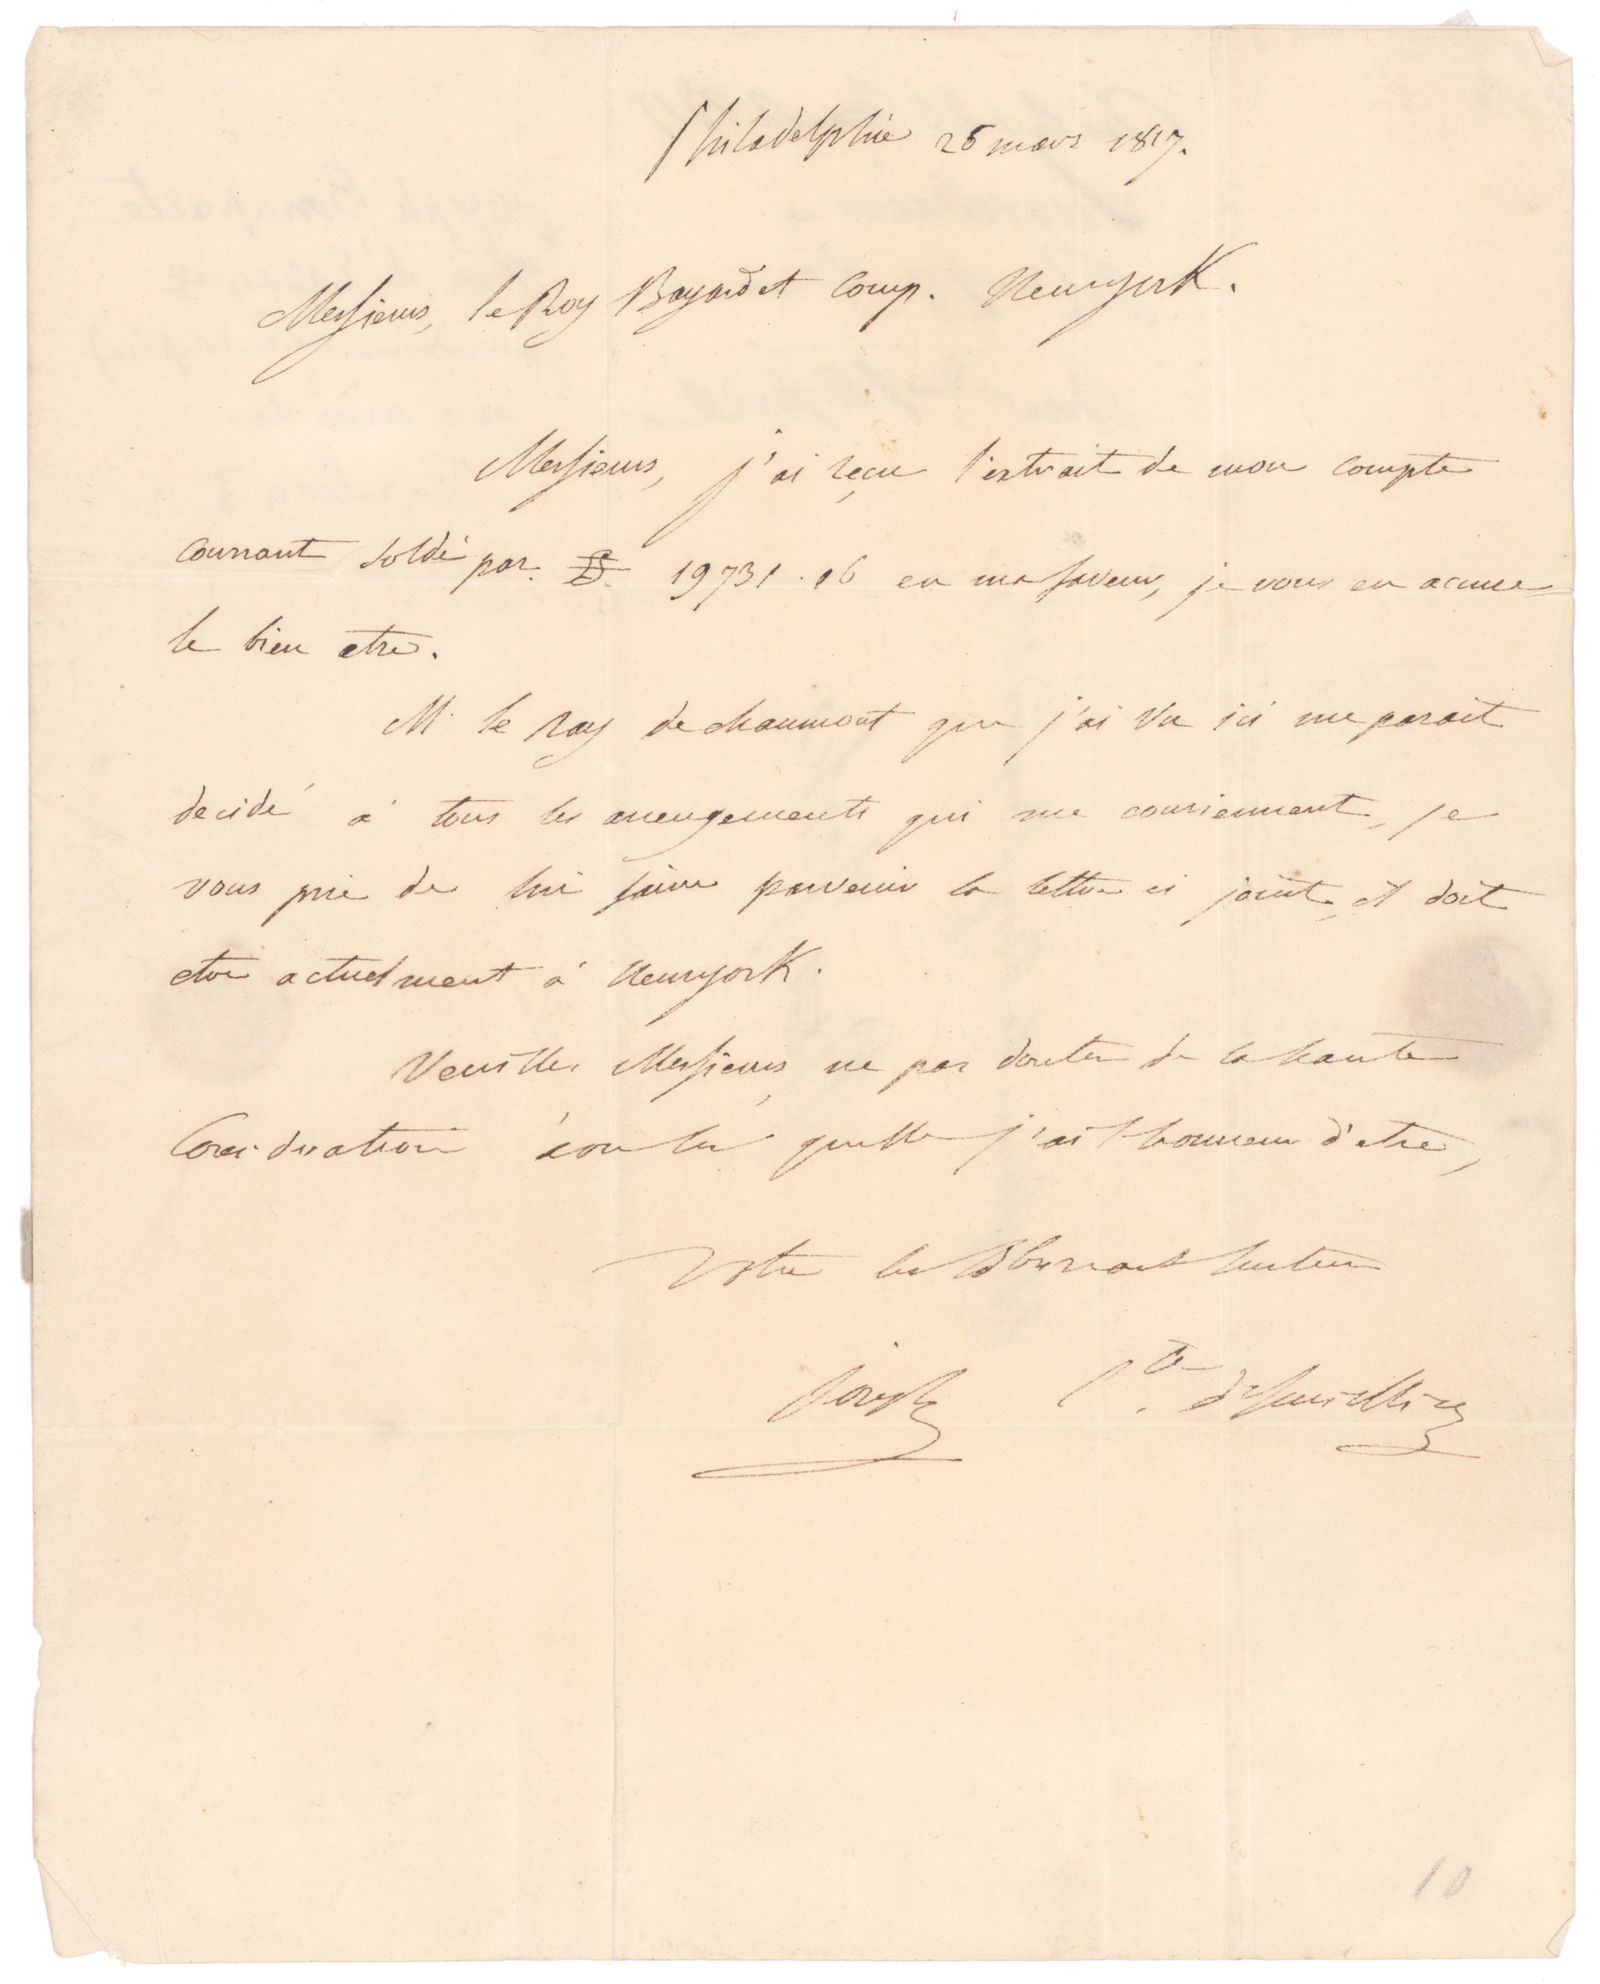 Philadelphie 26 mars 1817.
Messieurs, le Roy Bayard et Comp. Newyork.
Messieurs, j'ai reçu l'extrait de mon compte
courrant soldé par $ 19731.16 en ma faveur, je vous en accuse
le bien etre.
M. le Ray de chaumont que j'ai vu ici me parait
decidé à tous les arrengements qui me conviennent, je
vous prie de lui faire parvenir la lettre ci joint, il doit
etre actuelment à Newyork.
Veuillez Messieurs ne pas douter de la haute
Consideration avec la quelle j'ai l'honneur d'etre,
Votre serviteur
Joseph C.te de Survilliers
10